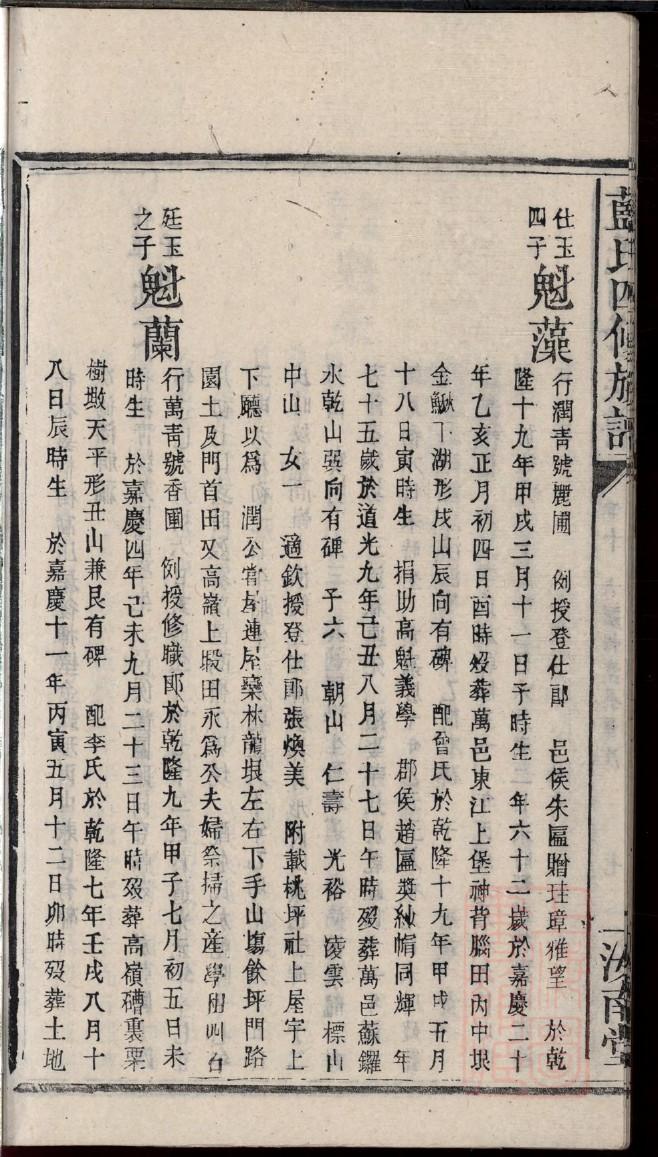 藍氏四修族譜
汝南堂
仕玉
四子
魁藻
行潤靑號麗圃 例授登仕郎 邑侯朱匾贈珪璋雅望 於乾
隆十九年甲戌三月十一日子時生 年六十二歲於嘉慶二十
年乙亥正月初四日酉時歿葬萬邑東江上堡神背腦田內中垠
金鰍下湖形戌山辰向有碑 配曾氏於乾隆十九年甲戌五月
十八日寅時生 捐助高魁義學 郡侯趙匾奬紗幬同輝 年
七十五歲於道光九年己丑八月二十七日午時歿葬萬邑蘇鑼
水乾山巽向有碑 子六 朝山 仁壽 光裕 凌雲 標山
中山 女一 適欽授登仕郎張煥美 附載桃坪社上屋宇上
下廳以爲 潤公嘗 連屋藥林龍垠左右下手山塲餘坪門路
園土及門首田又高嶺上塅田永爲公夫婦祭掃之產學
廷玉
之子
魁蘭
行萬靑號香圃 例授修職郎於乾隆九年甲子七月初五日未
時生 於嘉慶四年己未九月二十三日午時歿葬高嶺磻裏栗
樹墩天平形丑山兼艮有碑 配李氏於乾隆七年壬戌八月十
八日辰時生 於嘉慶十一年丙寅五月十二日卯時歿葬土地